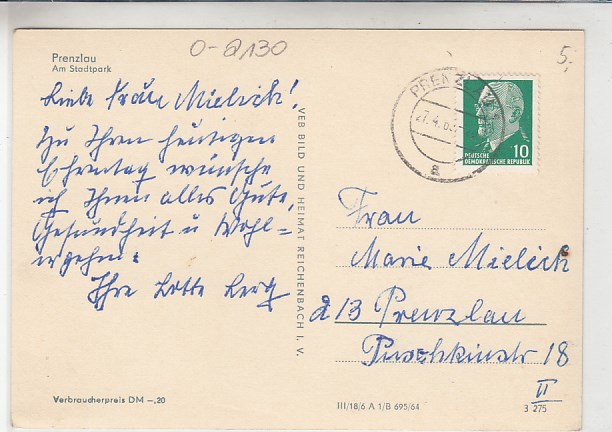 O-2130
5,-
Prenzlau
Am Stadtpark
Liebe Frau Mielick!
Zu Ihrem heutigen
Ehrentag wünsche
ich Ihnen alles Gute,
Gesundheit u Wohl=
ergehen.
Ihre Lotte Berg
VEB BILD UND HEIMAT REICHENBACH I. V.
PRENZLAU
27.4.65
a
10
DEUTSCHE
DEMOKRATISCHE REPUBLIK
Frau
Marie Mielick
213 Prenzlau
Puschkinstr 18
II
Verbraucherpreis DM -,20
III/18/6 A 1/B 695/64
3 275